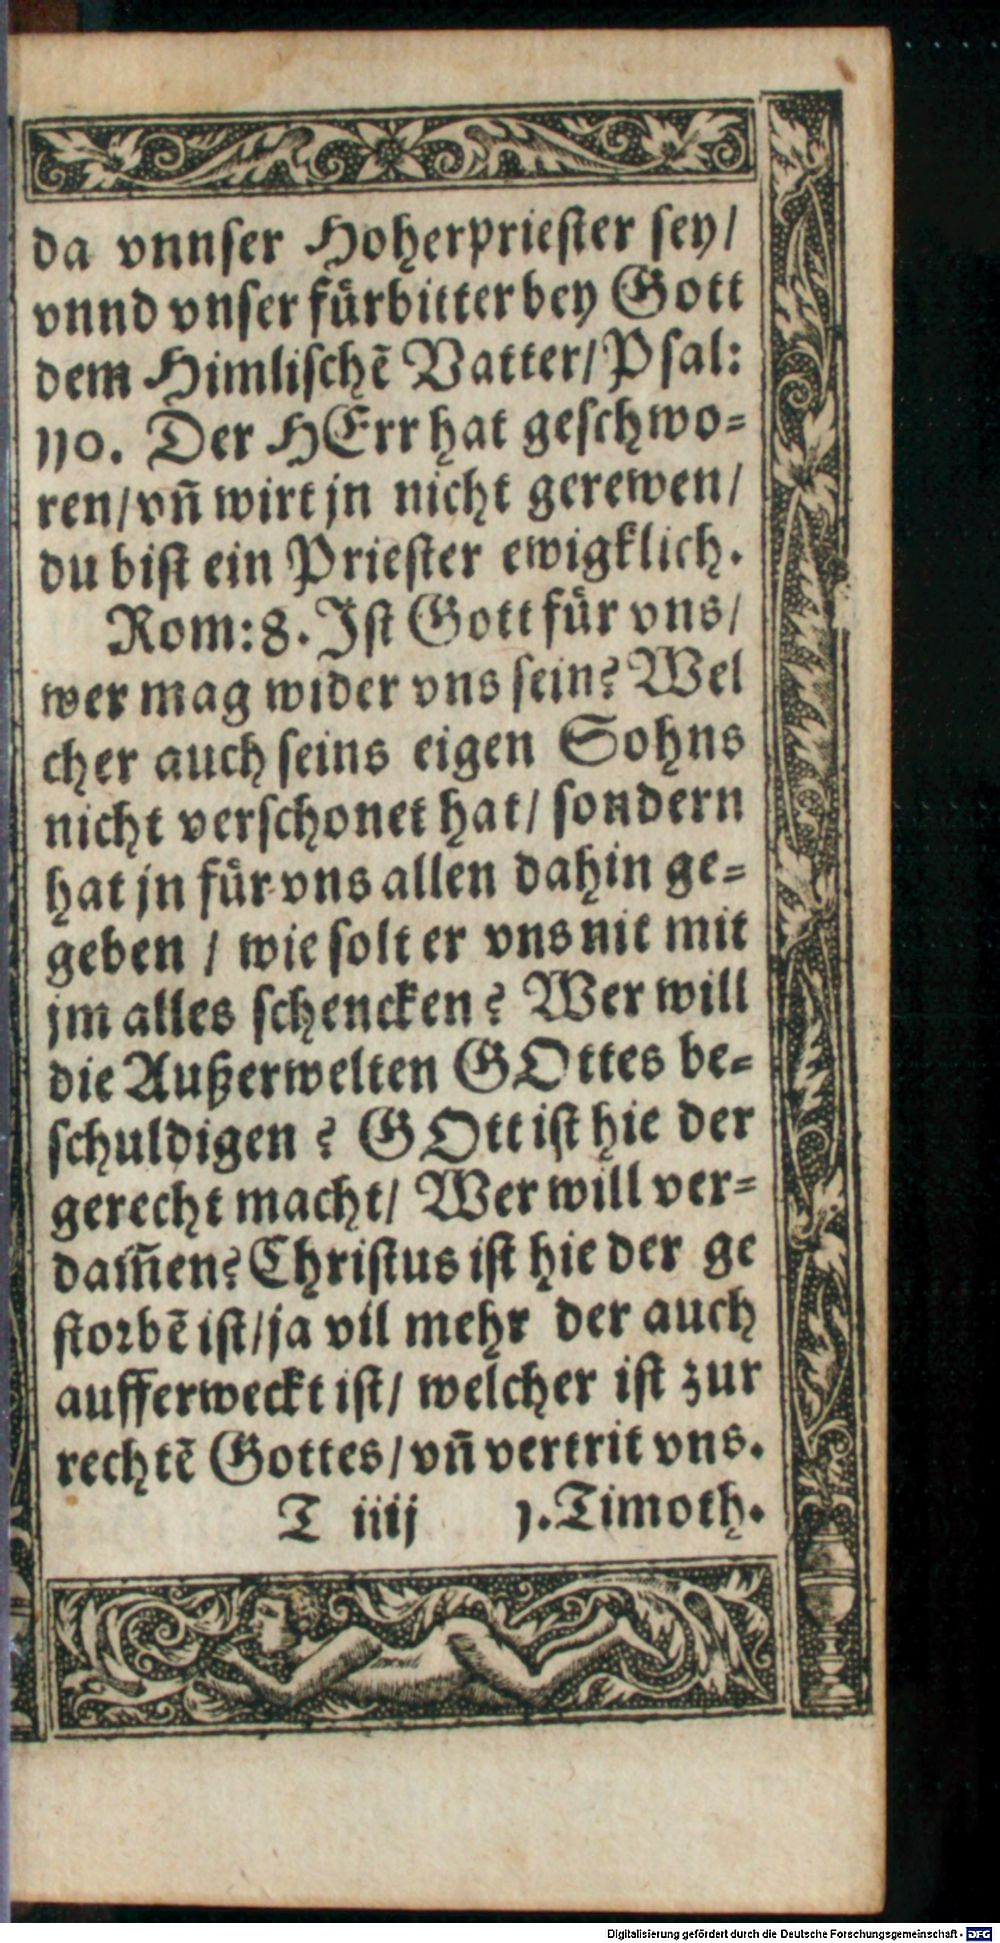 da vnnser Hoherpriester sey/
vnnd vnser fürbitter bey Gott
dem Himlischē Vatter/Psal:
110. Der HErr hat geschwo=
ren/vn̄ wirt jn nicht gerewen/
du bist ein Priester ewigklich.
Rom:8. Ist Gott für vns/
wer mag wider vns sein? Wel
cher auch seins eigen Sohns
nicht verschonet hat/ sondern
hat jn für vns allen dahin ge=
geben / wie solt er vns nit mit
jm alles schencken? Wer will
die Außerwelten GOttes be=
schuldigen ? GOtt ist hie der
gerecht macht/ Wer will ver=
dam̄en? Christus ist hie der ge
storbē ist/ja vil mehr der auch
aufferweckt ist/ welcher ist zur
rechtē Gottes/vn̄ vertrit vns.
T iiij 1.Timoth.
Digitalisierung gefördert durch die Deutsche Forschungsgemeinschaft - DFG